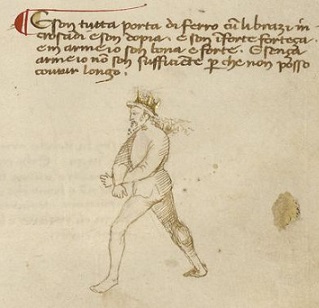 E son tutta porta di ferro cū li brazi in
crosadi e son dopia. e son ī forte forteça.
e in arme io son bona e forte. E sença
arme io nō son sufficiēte ꝑ che non posso
couꝛir longo.